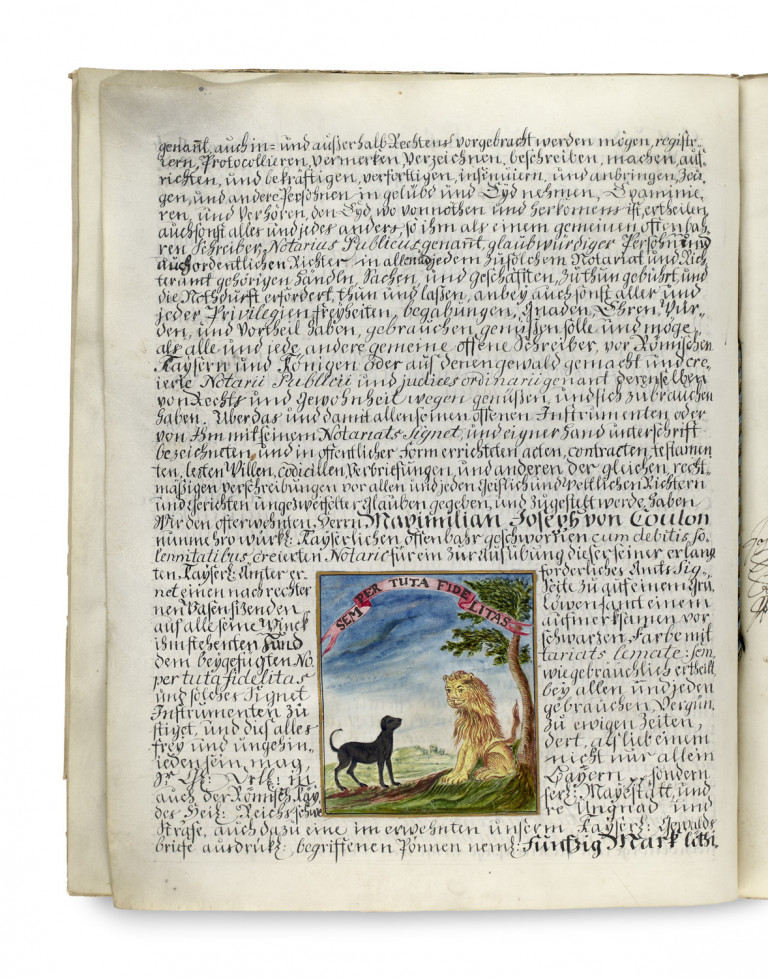 genañt, auch in= und außerhalb Rechtens vorgebracht werden mögen, registr=
iern, Protocollieren, vermerken, verzeichnen, beschreiben, machen, aus=
richten, und bekräftigen, verfertigen, insinuiern, und anbringen, Zeu=
gen, und andere Persohnen in gelübd und Eyd nehmen, Examinie=
ren, und verhören, den Eyd, wo vonnöthen und herkomens ist, ertheilen,
auch sonst alles und jedes anders, so ihm als einem gemeinen offenbah=
ren Schreiber, Notarius Publicus genant, glaubwürdiger Persohn und
auch ordentlichen Richter in allen und jedem zu solchem Notariat und Rich
teramt gehörigen händln, Sachen, und Geschäfften, zu thun gebührt, und
die Nothdurft erfordert, thun und lassen, anbey auch sonst aller und
jeder Privilegien, freyheiten, begabungen, Gnaden, Ehren, Wür=
den, und Vortheil haben, gebrauchen, genüssen solle und möge,
als alle und jede andere gemeine offene Schreiber, vor Römischen
Kaysern und Königen oder aus denengewald gemacht und cre=
ierte Notarii Publicii und judices ordinarii genant derenselben
von Rechts und Gewohnheit wegen genüßen, und sich zu brauchen
haben. Über das und damit allen seinen offenen Instrumenten, oder
von Ihm mit seinem Notariats Signet, und eigner hand unterschrift
bezeichneten, und in offentlicher Form errichteten acten, contracten, testamen
ten, lezten Willen, codicillen, Verbriefungen, und anderen der gleichen recht=
mäßigen verschreibungen vor allen und jeden Geistlich und weltlichen Richtern
und Gerichten ungezweifelter Glauben gegeben, und zugestelt werde haben
Wir den ofterwehnten Herrn Maximilian Joseph von Coulon
nunmehro würkl: Kayserlichen offenbahr geschworrien cum debitis so=
lennitatibus creierten Notaric für ein zur Ausübung dieser seiner erlang
ten Kayserl: Amter er= forderliches Amts Sig=
net einen nach rechter Seite zu auf einem Grü
nen Wasen sizenden Löwen samt einem
auf alle seine Winck aufmerksamen vor
ihm stehenten Hund schwarzen Farbe mit
dem beygefügten No= tariats lemate: sem=
per tuta fidelitas wie gebräuchlich ertheilt,
und solches Signet bey allen und jeden
Instrumenten zu gebrauchen Vergün=
stiget, und dis alles zu ewigen Zeiten,
frey und ungehin= dert, als lieb einem
jeden sein mag, nicht nur allein
Bayern, sondern
auch der Römisch Kay= serl: Mayestätt, und
des Heil: Reichs schwe re Ungnad und
Strafe, auch dazu eine im erwehnten unserm Kayserl: Gewalds
briefe ausdrukl: begriffenen Pönnen neml: fünfzig Mark löthi.
SEMPER TUTA FIDELITAS